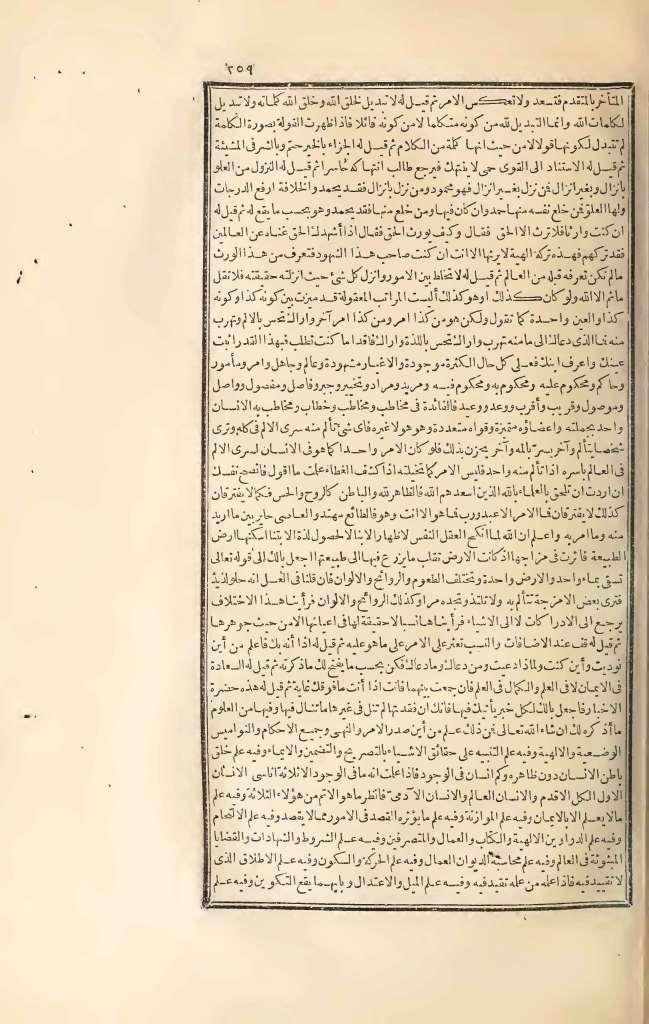 ٢٥٩
المتأخر بالمتقدم فتسعد ولا تعكس الامر ثم قيل له لا تبديل لخلق الله وخلق الله كلماته ولا تبديل
لكلمات الله وانما التبديل لله من كونه متكلما لا من كونه قائلا فاذا ظهرت القولة بصورة الكلمة
لم تتبدل لكونها قولا لا من حيث انها كلمة من الكلام ثم قيل له الجزاء بالخير حتم وبالشر فى المشيئة
ثم قيل له الاستناد الى القوى حمى لا ينتهك فيرجع طالب انتهاكه خاسرا ثم قيل له النزول من العلو
بانزال وبغير انزال فمن نزل بغير انزال فهو محمود ومن نزل بانزال فقد يحمد والخلافة ارفع الدرجات
ولها العلو فمن خلع نفسه منها حمد وان كان فيها ومن خلع منها فقد يحمد وهو بحسب ما يقع له ثم قيل له
ان كنت وارثا فلا ترث الا الحق فقال وكيف يورث الحق فقال اذا أشهدك الحق غناه عن العالمين
فقد تركهم فهذه تركة الهية لا يرثها الا انت ان كنت صاحب هذا الشهود فتعرف من هذا الورث
ما لم تكن تعرفه قبله من العالم ثم قيل له لا تخلط بين الامور وانزل كل شئ حيث انزلته حقيقته فلا تقل
ما ثم الا الله ولو كان كذلك او هو كذلك أليست المراتب المعقولة قد ميزت بين كونه كذا وكونه
كذا والعين واحدة كما تقول ولكن هو من كذا امر ومن كذا امر آخر واراك تحس بالالم وتهرب
منه فما الذى دعاك الى ما منه تهرب واراك تحس باللذة واراك فاقدا ما كنت تطلب فبهذا القدر اثبت
عينك واعرف اينك فعلى كل حال الكثرة موجودة والاغيار مشهودة وعالم وجاهل وامر ومأمور
وحاكم ومحكوم عليه ومحكوم به ومحكوم فيه ومريد ومراد وتخيير وجبر وفاصل ومفصول وواصل
وموصول وقريب وأقرب ووعد ووعيد فالفائدة فى مخاطب ومخاطب وخطاب ومخاطب به الانسان
واحد بجملته واعضاؤه متميزة وقواه متعددة وهو هو لا غيره فاى شئ تألم منه سرى الالم فى كله وترى
شخصا يتألم وآخر يسر بالمه وآخر يحزن بذلك فلو كان الامر واحدا كما هو فى الانسان لسرى الالم
فى العالم بأسره اذا تألم منه واحد فليس الامر كما تخيلته اذا كشف الغطاء علمت ما اقول فانصح نفسك
ان اردت ان تلحق بالعلماء بالله الذين اسعدهم الله فالظاهر لله والباطن كالروح والحس فكما لا يفترقان
كذلك لا يفترقان فما الامر الا عبد ورب فما هو الا انت وهو فالطائع مهتد والعاصى حاير بين ما اريد
منه وما امر به واعلم ان الله لما انكح العقل النفس لاظهار الابناء لا لحصول لذة الابتناء اسكنها ارض
الطبيعة فاثرت فى مزاجها اذ كانت الارض تقلب ما يزرع فيها الى طبيعتها اجعل بالك الى قوله تعالى
تسقى بماء واحد والارض واحدة وتختلف الطعوم والروائح والالوان فان قلنا فى العسل انه حلو لذيذ
فترى بعض الامزجة تتألم به ولا تلتذ وتجده مرا وكذلك الروائح والالوان فرأينا هذا الاختلاف
يرجع الى الادراكات لا الى الاشياء فرأيناها نسبا لا حقيقة لها فى اعيانها الا من حيث جوهرها
ثم قيل له قف عند الاضافات والنسب تعثر على الامر على ما هو عليه ثم قيل له اذا أنه بك فاعلم من أين
نوديت وأين كنت ولماذا دعيت ومن دعاك وما دعاك فكن بحسب ما ينتج لك ما ذكرته ثم قيل له السعادة
فى الايمان لا فى العلم والكمال فى العلم فان جمعت بينهما فانت اذا أنت ما فوقك غاية ثم قيل له هذه حضرة
الاخبار فاجعل بالك لكل خبر يأتيك فيها فانك ان فقدتها لم تنل فى غيرها ما تنال فيها وفيها من العلوم
ما أذكره لك ان شاء الله تعالى فمن ذلك علم من أين صدر الامر والنهى وجميع الاحكام والنواميس
الوضعية والالهية وفيه علم التنبيه على حقائق الاشياء بالتصريح والتضمين والايماء وفيه علم خلق
باطن الانسان دون ظاهره وكم انسان فى الوجود فاذا علمت انه ما فى الوجود الا ثلاثة اناسى الانسان
الاول الكل الاقدم والانسان العالم والانسان الآدمى فانظر ما هو الاتم من هؤلاء الثلاثة وفيه علم
ما لا يعلم الا بالايمان وفيه علم الموازنة وفيه علم ما يؤثره القصد فى الامور مما لا يقصد وفيه علم الالتحام
وفيه علم الدواوين الالهية والكتاب والعمال والمتصرفين وفيه علم الشروط والشهادات والقضايا
المبثوثة فى العالم وفيه علم محاسبة الديوان العمال وفيه علم الحركة والسكون وفيه علم الاطلاق الذى
لا تقييد فيه فاذا علمه من علمه تقيد فيه وفيه علم الميل والاعتدال وبايهما يقع التكوين وفيه علم